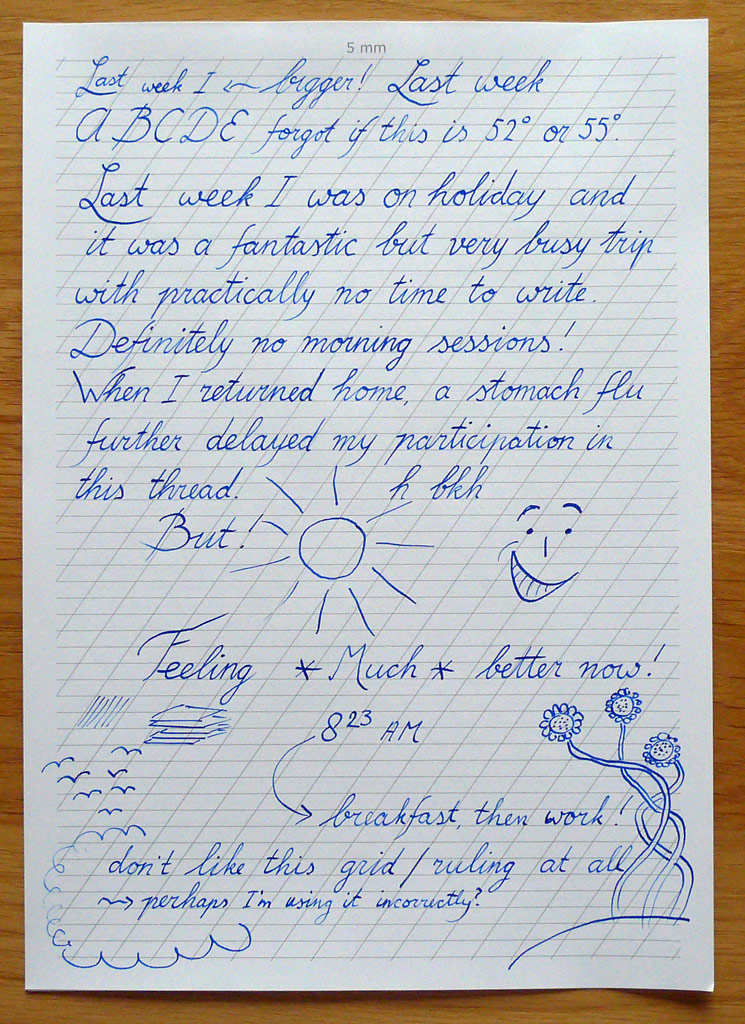 5 mm
Last week I ← bigger! Last week
ABCDE forgot if this is 52° or 55°.
Last week I was on holiday and
it was a fantastic but very busy trip
with practically no time to write.
Definitely no morning sessions!
When I returned home, a stomach flu
further delayed my participation in
this thread. h bkh
But!
Feeling * Much * better now!
8 23 AM
breakfast, then work!
don't like this grid / ruling at all
→ perhaps I'm using it incorrectly?